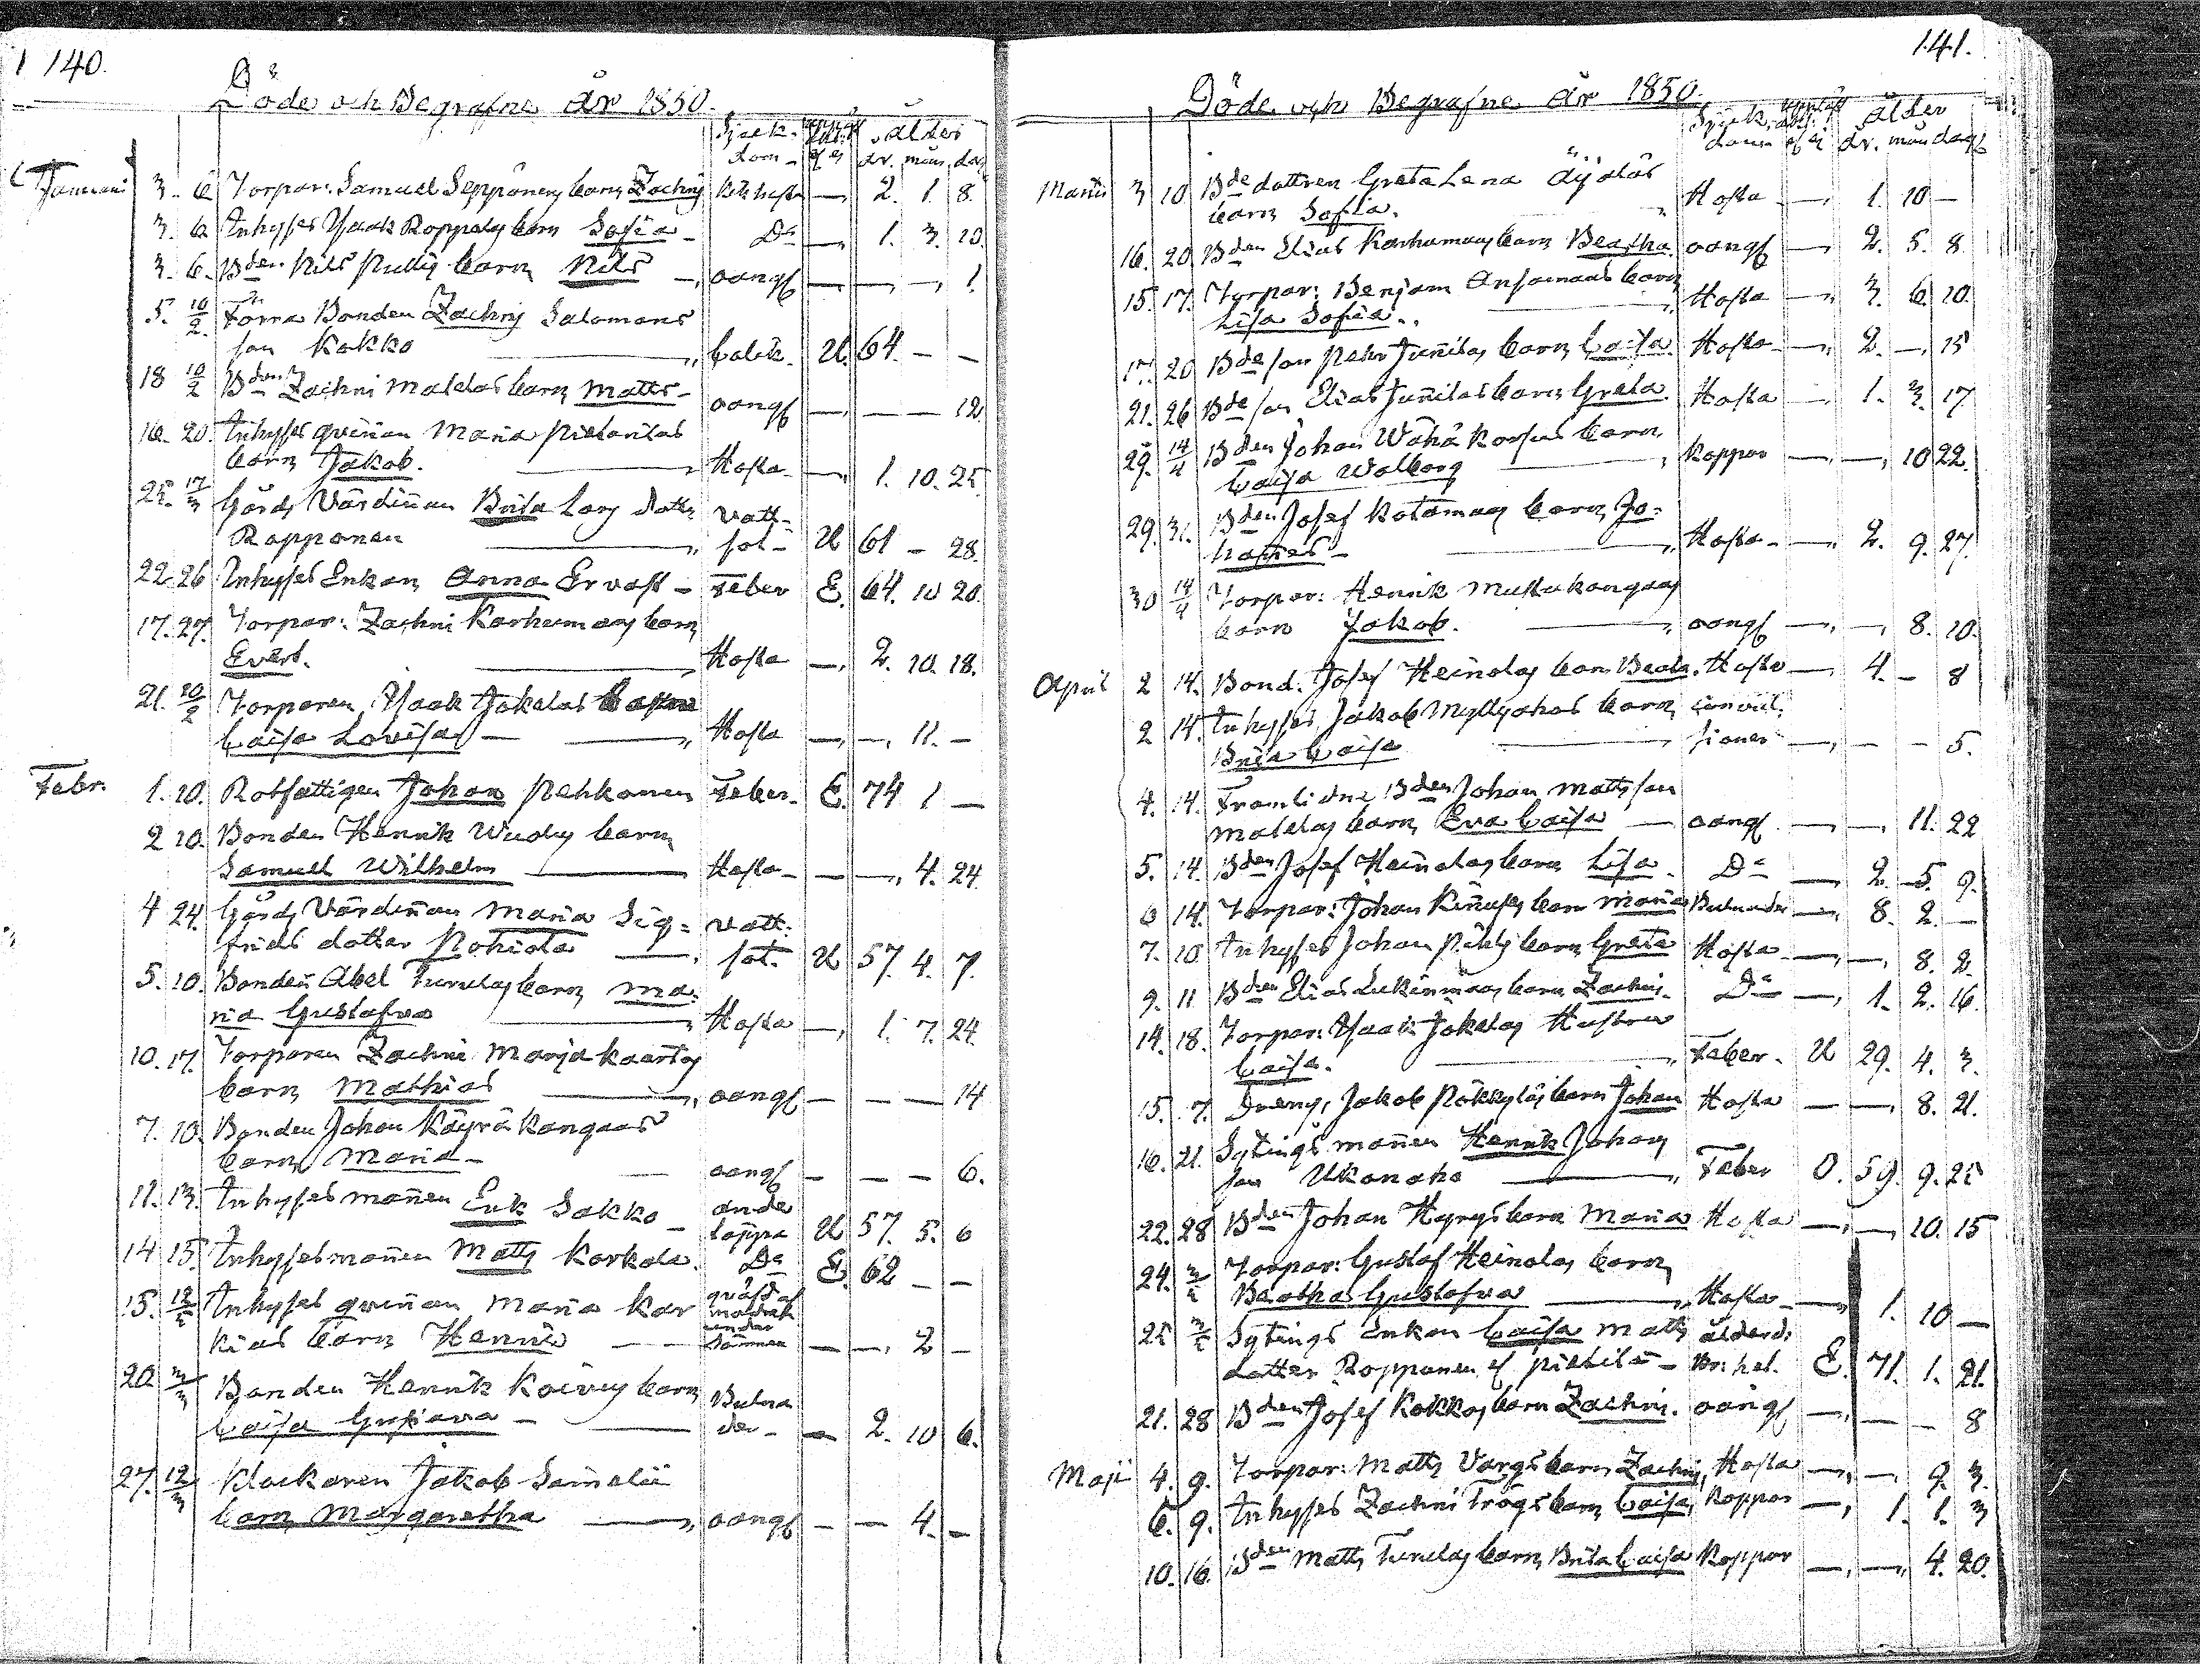 140.
Döde och Begrafne år 1850.
Sjuk- ålder
dom - år. mån. dag
Januari 3. 6. Torpar: Samuel Seppänens barn Zachris Kikhosta — 2. 1. 8.
3. 6. Inhyses Isaak Roppolas barn Sofia - Do — 1. 3. 10.
3. 6. Bden Nils barn Nils —, oangf — — — 1.
5. 10/2 Förra Bonden Zachris Salomons
son Kokko — Colik. U. 64. — —
18 10/2 Bden Zachri Matelas barn Matts - oangf — — — 12
16. 20. Inhyses qvinnan Maria Pietarilas
barn Jakob. — Hosta — 1. 10. 25
25. 17/3 Gårds Värdinnan Brita Lars dotter vatt-
Ropponen — sot - U 61 — 28.
22 26 Inhyses Enkan Anna Ervast - Feber E. 64. 10 20.
17. 27. Torpar: Zachri Karhumaas barn
Evert. — Hosta — 2. 10. 18.
21. 10/2 Torparen Isaak Jokelas
Caisa Lovisa — Hosta — —, 11. —
Febr. 1. 10. Rotfattigen Johan Pehkonen Feber. E. 74 1 —
2 10. Bonden Henrik barn
Samuel Wilhelm — Hosta — — —, 4. 24.
4 24. Gårds Värdinnan Maria Sig= vatt-
frids dotter Pohjola — sot. U 57. 4. 7.
5. 10. Bonden Abel Tunelas barn Ma-
ria Gustafva — Hosta — 1. 7. 24.
10. 17. Torparen Zachri Marjakaartos
barn Mathias — oangf — — — 14
7. 10. Bonden Johan Käyräkangaas
barn Maria - — oangf — — — 6.
11. 13. Inhyses mannen Erik Sakko — ande
täppa U 57. 5. 6
14 15. Inhyses mannen Matts Korkala. Do E. 62 — —
15. Inhyses qvinnan Maria Kar qväfd af
modren
under
kias barn Henric — sömnen — —, 2 —
20. 3/3 Bonden Henrik Koivus barn Bulna
Caisa — der - — 2. 10 6.
27. 12/3 Klockaren Jakob Samelii
barn Margaretha — oangf — — 4. —
141.
Döde och Begrafne år 1850.
Sjuk- ålder
dom år. mån dagf
Martii 3 10. Bde dottren Greta Lena Äijäläs
barn Sofia. Hosta — 1. 10 —
16. 20. Bden Elias Karhumaas barn Beatha. oangf — 2. 5. 8.
15. 17. Torpar: Benjam Ansamaas barn
Lisa Sofia. — Hosta — 3. 6. 10.
17. 20 Bde son Pehr Junnilas barn Caisa. Hosta — 2. —, 15
21. 26 Bde son Elias Junnilas barn Greta. Hosta — 1. 3. 17
29. 14/4 Bden Johan Wähä Korfus barn
Caisa Walborg — Koppor — —, 10 22.
29. 31. Bden Josef Kotamaas barn Jo-
hannes - — Hosta — 2. 9. 27.
30 14/4 Torpar: Henrik Mustakangaas
barn Jakob. — oangf — —, 8. 10.
April 2 14. Bond: Josef Heinolas barn Beata. Hosta — 4. — 8
2 14. Inhyses Jakob Myllyahos barn convul-
Brita Caisa — sioner — — — 5.
4. 14. Framlidne Bden Johan Mattsson
Matelas barn Eva Caisa — oangf — —, 11. 22
5. 14. Bden Josef Heinolas barn Lisa. Do — 2. 5. 9.
6 14. Torpar: Johan Kinnuses barn Maria Bulnader — 8. 2. —
7. 10 Inhyses Johan barn Greta Hosta — —, 8. 2.
9. 11 Bden Elias Lukinmaas barn Zachris. Do — 1. 2. 16.
14. 18. Torpar: Isaak Jokelas Hustru
Caisa. — Feber. U 29. 4. 3.
15. 17. Dreng: Jakob barn Johan Hosta — —, 8. 21.
16. 21. Sytings mannen Henrik Johans
son Ukonaho — Feber O. 59. 9. 25
22. 28 Bden Johan Hyrys barn Maria Hosta — — 10. 15
24. Torpar: Gustaf Heinolas barn
Beatha Gustafva — Hosta — 1. 10 —
25 Sytings Enkan Caisa Matts ålderd:
dotter Ropponen el Pietilä — Br: het. E. 71. 1. 21.
21. 28 Bden Josef Kokkos barn Zachris. oangf — — — 8
Maji 4. 9. Torpar: Matts Vargs barn Zachris, Hosta — — 9. 3.
6. 9. Inhyses Zachri Trögs barn Caisa, Koppor — 1. 1. 3
10. 16. Bden Matts Tunelas barn Brita Caisa Koppor — — 4. 20.